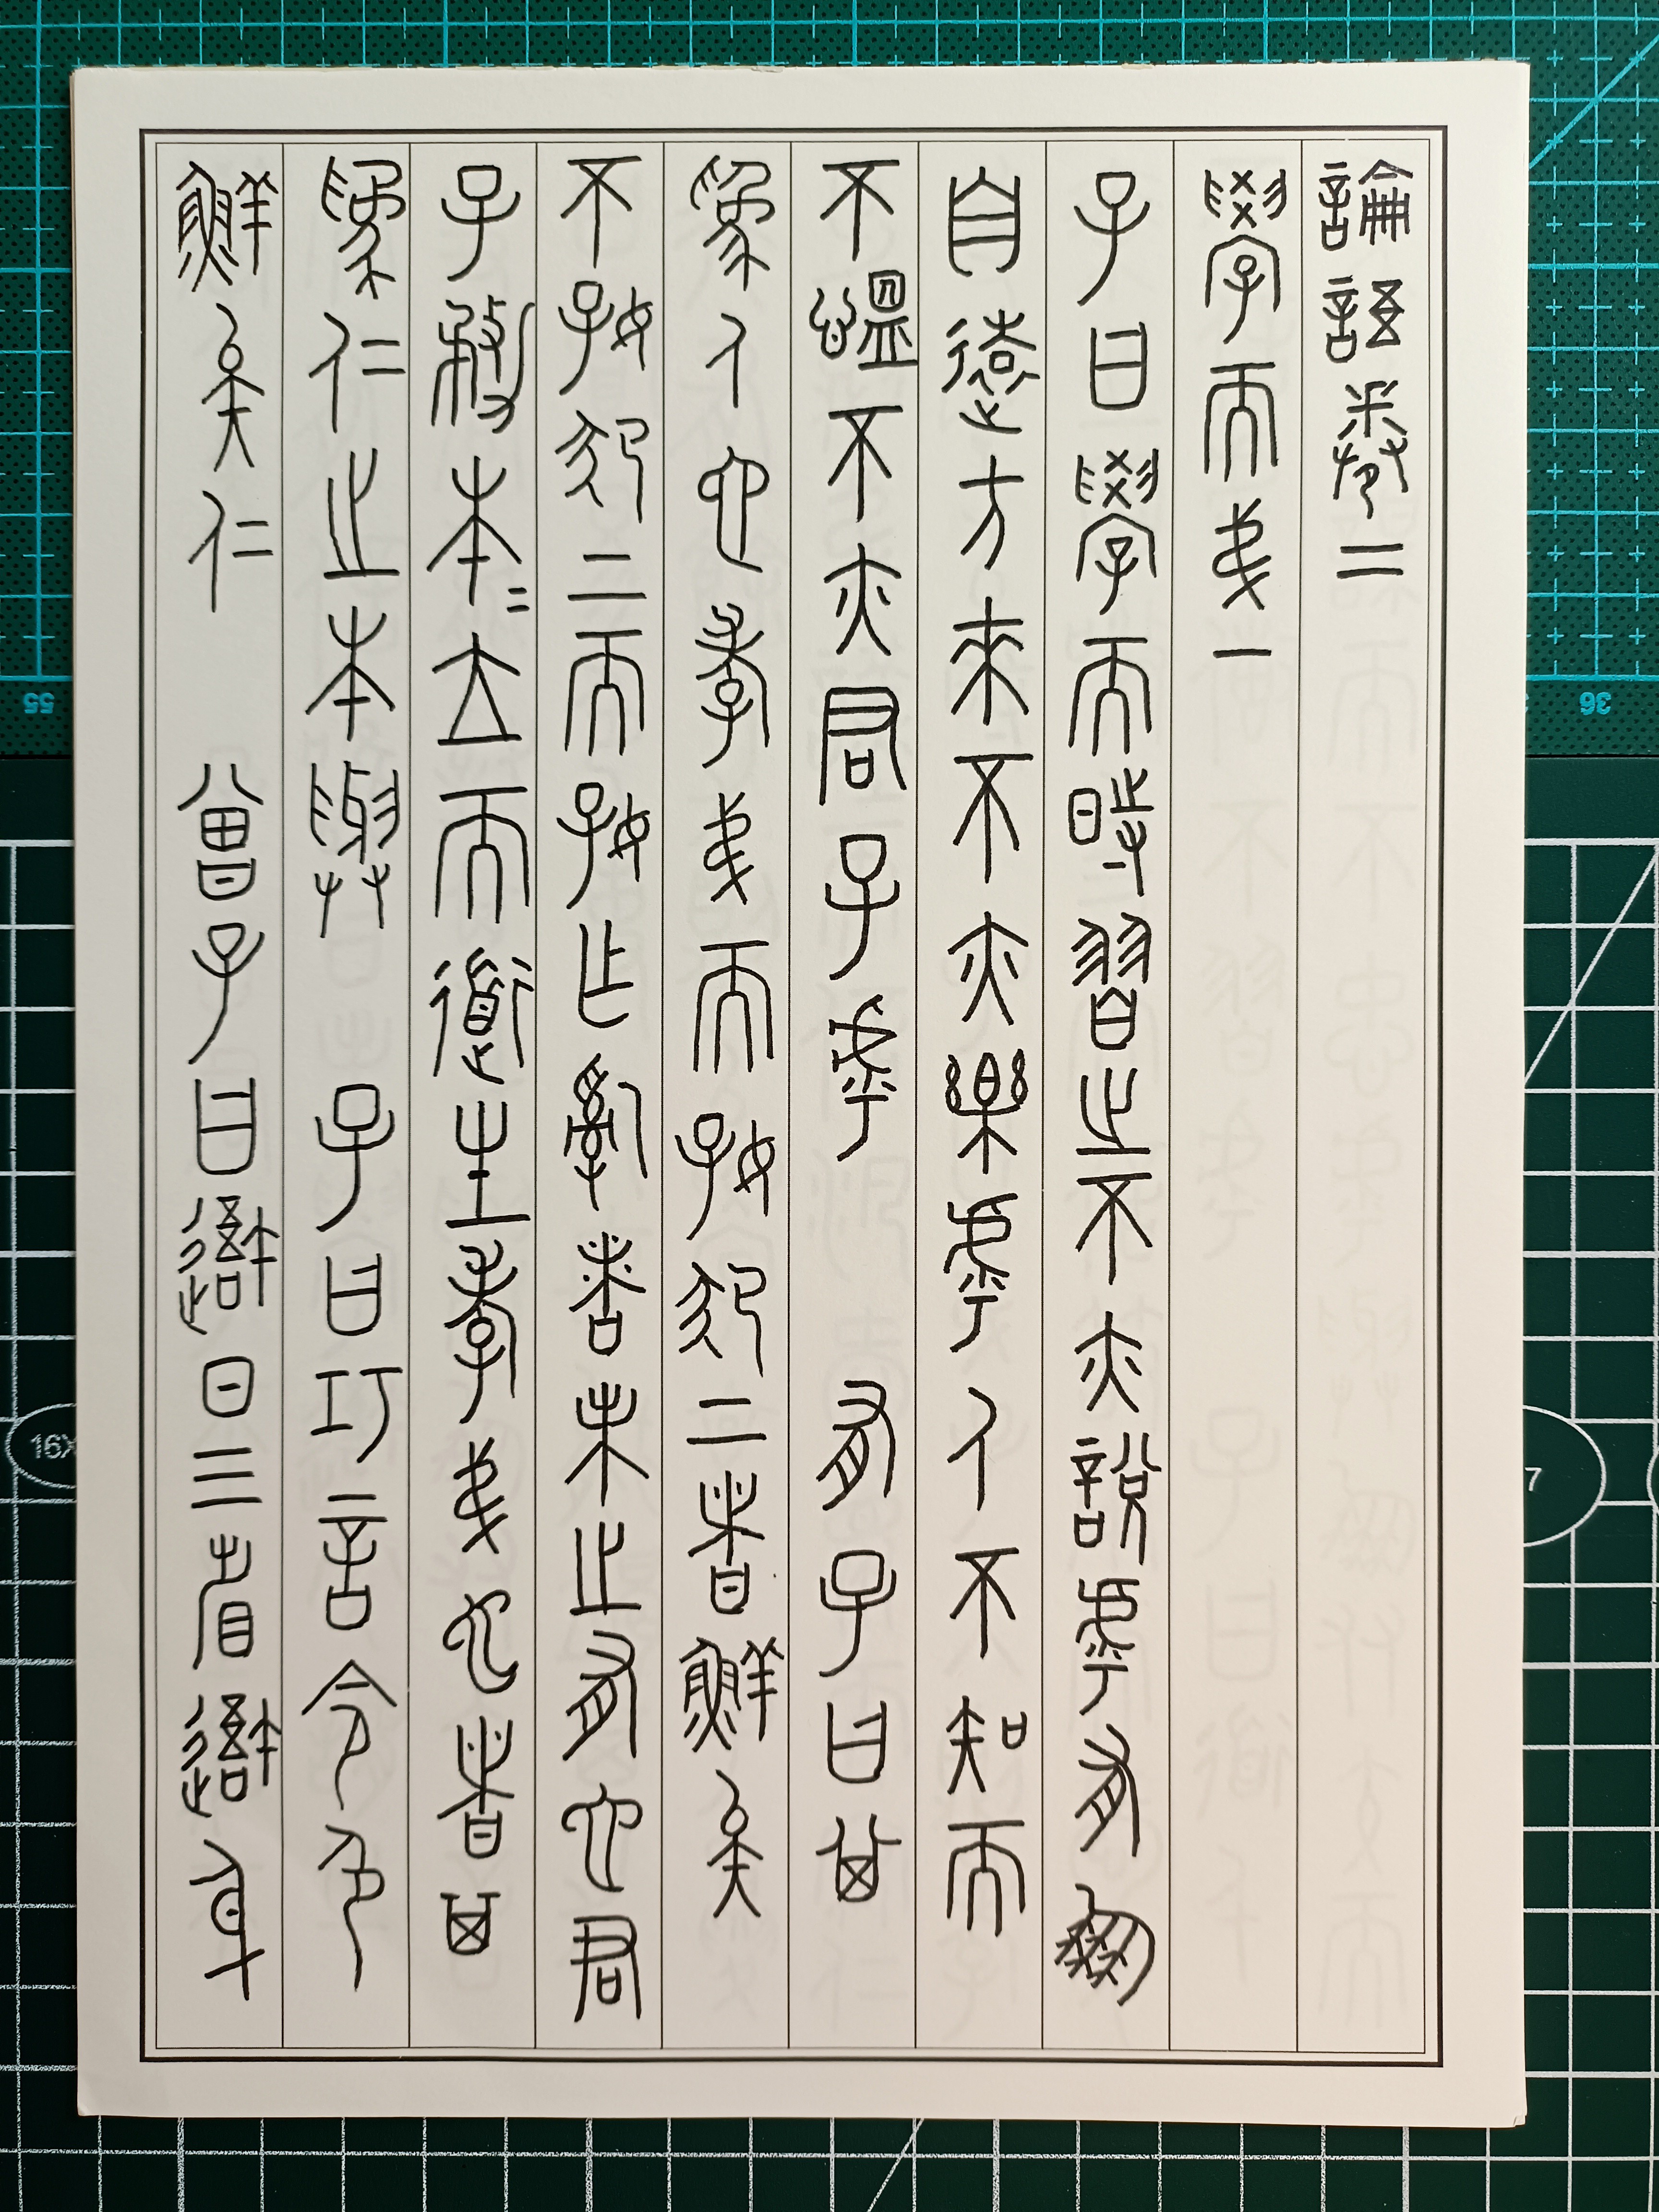 論語卷二
學而弟一
子曰學而時習之不亦說乎有朋
自遠方來不亦樂乎人不知而
不慍不亦君子乎　有子曰其
爲人也孝弟而好犯上者鮮矣
不好犯上而好作亂者未之有也君
子務本=立而道生孝弟也者其
爲仁之本與　子曰巧言令色
鮮矣仁　曾子曰吾日三省吾身